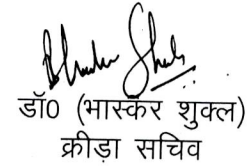 डॉ0 (भास्कर शुक्ल)
क्रीड़ा सचिव